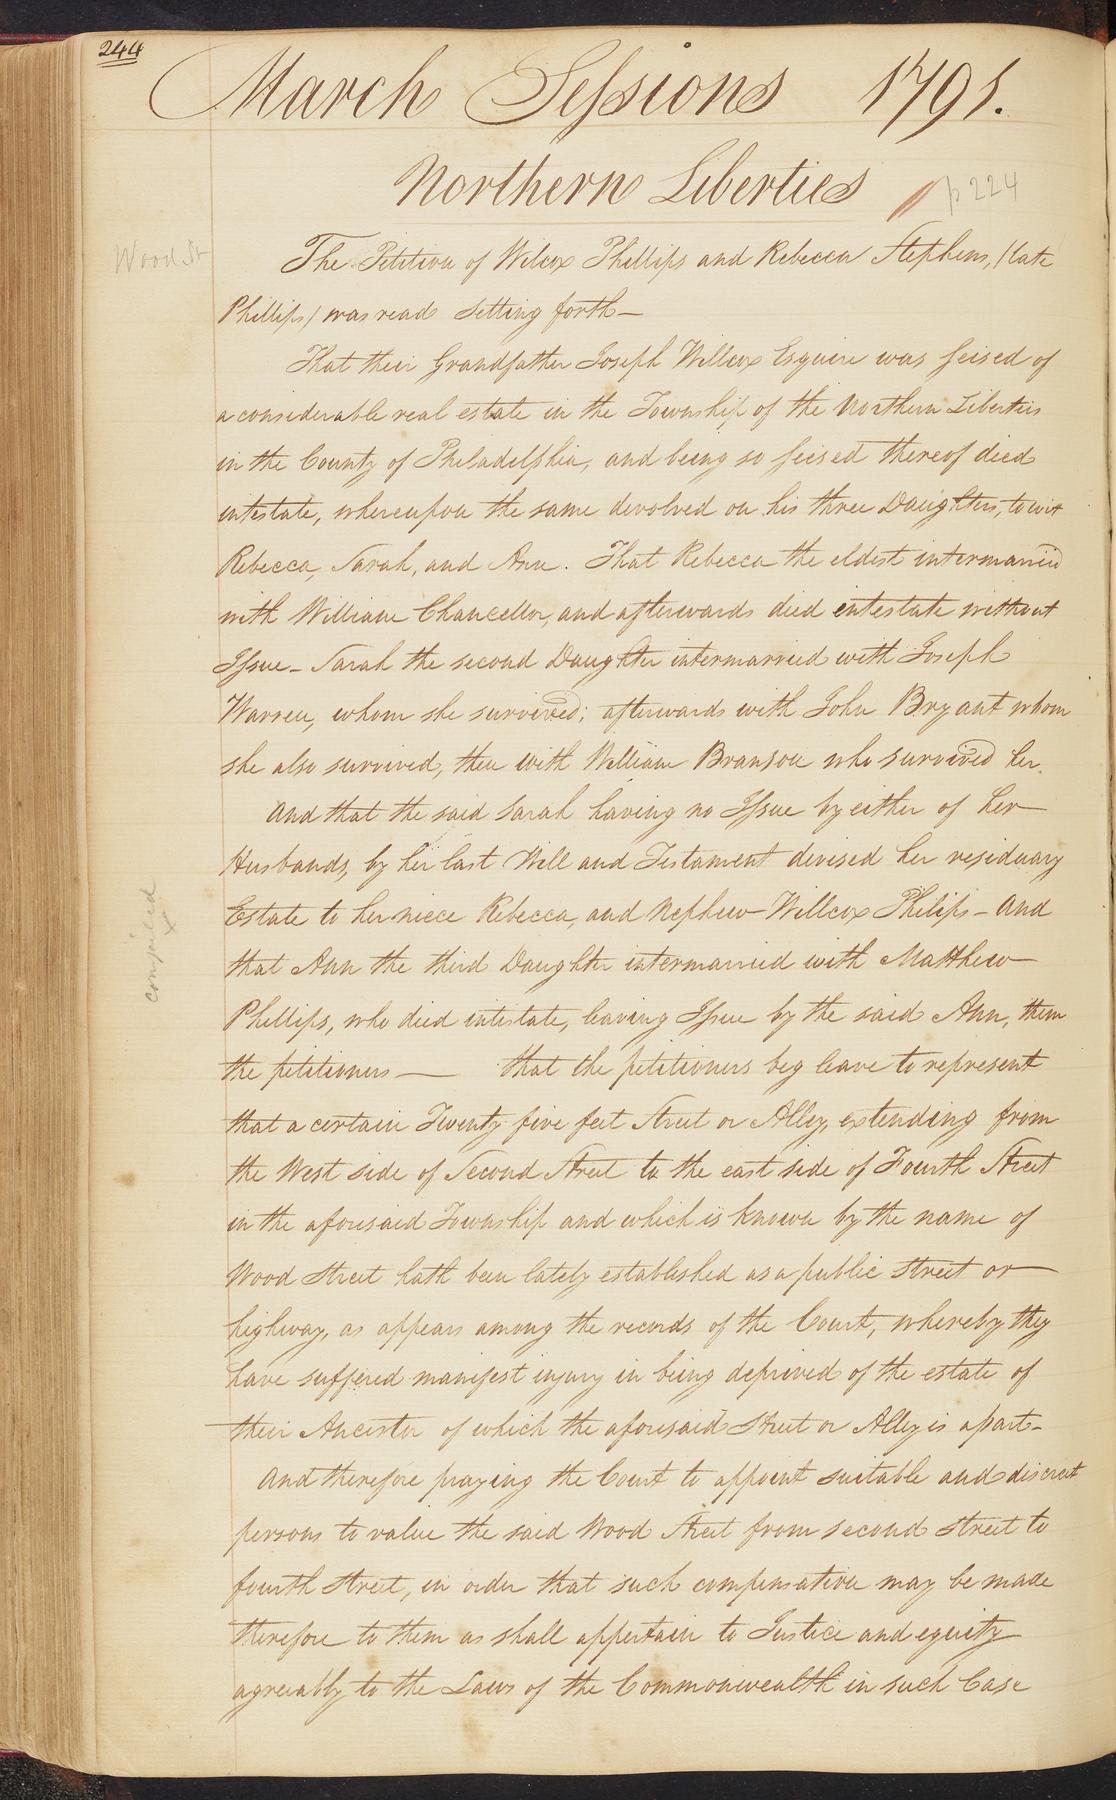 244
March Sessions 1795.
Northern Liberties
p 224
Wood St
The Petition of Wilcox Phillips and Rebecca Stephens, (late
Phillips) was read setting forth—
That their Grandfather Joseph Willcox Esquire was seised of
a considerable real estate in the Township of the Northern Liberties
in the County of Philadelphia, and being so seised thereof died
intestate, whereupon the same devolved on his three Daughters, to wit
Rebecca, Sarah, and Ann. That Rebecca the eldest intermarried
with William Chancellor, and afterwards died intestate without
Issue— Sarah the second Daughter intermarried with Joseph
Warren, whom she survived; afterwards with John Bryant whom
she also survived, then with William Branson who survived her.
And that the said Sarah having no Issue by either of her
Husbands, by her last Will and Testament devised her residuary
Estate to her niece Rebecca, and Nephew Willcox Philips— And
that Ann the third Daughter intermarried with Matthew
Phillips, who died intestate, leaving Issue by the said Ann, them
the petitioners— that the petitioners beg leave to represent
that a certain Twenty five feet Street or Alley, extending from
the West side of Second Street to the east side of Fourth Street
in the aforesaid Township and which is known by the name of
Wood Street hath been lately established as a public street or
highway, as appears among the records of the Court, whereby they
have suffered manifest injury in being deprived of the estate of
their Ancestor of which the aforesaid Street or Alley is apart—
And therefore praying the Court to appoint suitable and discreet
persons to value the said Wood Street from second street to
fourth street, in order that such compensation may be made
therefore to them as shall appertain to Justice and equity
agreeably to the Laws of the Commonwealth in such Case
compiled
x